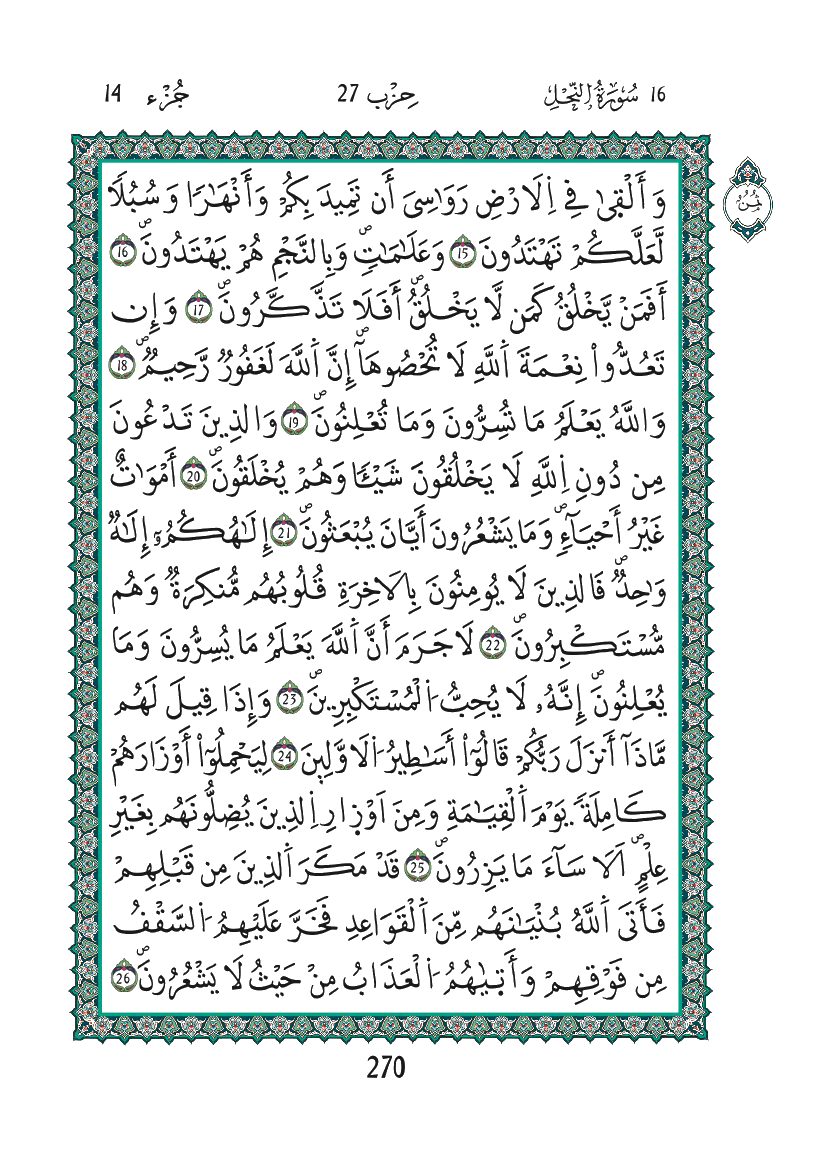 16 سُورَةُ النَّحْلِ حِزْب 27 جُزْء 14
ثُمُنُ
وَأَلْق۪يٰ فِے اِ۬لَارْضِ رَوَٰسِيَ أَن تَمِيدَ بِكُمْ وَأَنْهَٰراٗ وَسُبُلاٗ
لَّعَلَّكُمْ تَهْتَدُونَ 15 وَعَلَٰمَٰتٖۖ وَبِالنَّجْمِ هُمْ يَهْتَدُونَۖ 16
أَفَمَنْ يَّخْلُقُ كَمَن لَّا يَخْلُقُۖ أَفَلَا تَذَّكَّرُونَۖ 17 وَإِن
تَعُدُّواْ نِعْمَةَ اَ۬للَّهِ لَا تُحْصُوهَآۖ إِنَّ اَ۬للَّهَ لَغَفُورٞ رَّحِيمٞۖ 18
وَاللَّهُ يَعْلَمُ مَا تُسِرُّونَ وَمَا تُعْلِنُونَۖ 19 وَالذِينَ تَدْعُونَ
مِن دُونِ اِ۬للَّهِ لَا يَخْلُقُونَ شَيْـٔاٗ وَهُمْ يُخْلَقُونَۖ 20 أَمْوَٰتٌ
غَيْرُ أَحْيَآءٖۖ وَمَا يَشْعُرُونَ أَيَّانَ يُبْعَثُونَۖ 21 إِلَٰهُكُمُۥٓ إِلَٰهٞ
وَٰحِدٞۖ فَالذِينَ لَا يُومِنُونَ بِالَاخِرَةِ قُلُوبُهُم مُّنكِرَةٞ وَهُم
مُّسْتَكْبِرُونَۖ 22 لَا جَرَمَ أَنَّ اَ۬للَّهَ يَعْلَمُ مَا يُسِرُّونَ وَمَا
يُعْلِنُونَۖ إِنَّهُۥ لَا يُحِبُّ اُ۬لْمُسْتَكْبِرِينَۖ 23 وَإِذَا قِيلَ لَهُم
مَّاذَآ أَنزَلَ رَبُّكُمْ قَالُوٓاْ أَسَٰطِيرُ اُ۬لَاوَّلِينَ 24 لِيَحْمِلُوٓاْ أَوْزَارَهُمْ
كَامِلَةٗ يَوْمَ اَ۬لْقِيَٰمَةِ وَمِنَ اَوْزَارِ اِ۬لذِينَ يُضِلُّونَهُم بِغَيْرِ
عِلْمٍۖ اَلَا سَآءَ مَا يَزِرُونَۖ 25 قَدْ مَكَرَ اَ۬لذِينَ مِن قَبْلِهِمْ
فَأَتَى اَ۬للَّهُ بُنْيَٰنَهُم مِّنَ اَ۬لْقَوَاعِدِ فَخَرَّ عَلَيْهِمُ اُ۬لسَّقْفُ
مِن فَوْقِهِمْ وَأَت۪يٰهُمُ اُ۬لْعَذَابُ مِنْ حَيْثُ لَا يَشْعُرُونَۖ 26
270